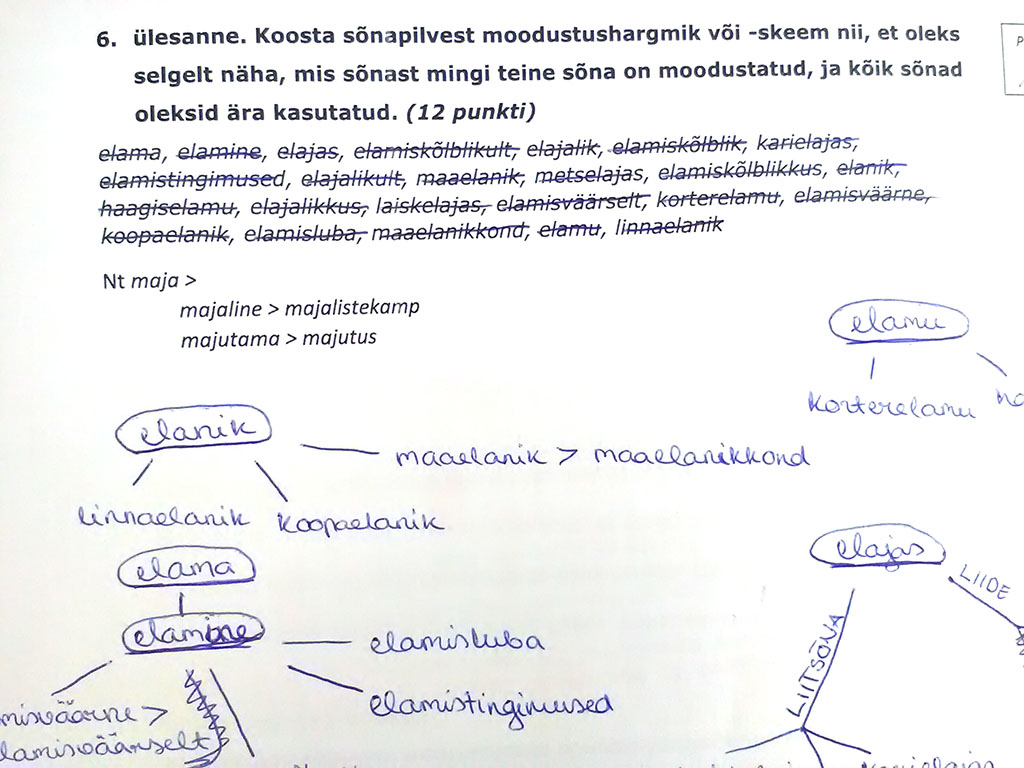 6. ülesanne. Koosta sõnapilvest moodustushargmik või -skeem nii, et oleks
selgelt näha, mis sõnast mingi teine sõna on moodustatud, ja kõik sõnad
oleksid ära kasutatud. (12 punkti)
elama, elamine, elajas, elamiskõlblikult, elajalik, elamiskõlblik, karielajas,
elamistingimused, elajalikult, maaelanik, metselajas, elamiskõlblikkus, elanik,
haagiselamu, elajalikkus, laiskelajas, elamisväärselt, korterelamu, elamisväärne,
koopaelanik, elamisluba, maaelanikkond, elamu, linnaelanik
Nt maja >
majaline > majalistekamp
majutama > majutus
elamu
korterelamu
elanik
maaelanik > maaelanikkond
linnaelanik koopaelanik
elajas
elama
LIIDE
elamine
elamisluba
LIITSÕNA
elamistingimused
misväärne >
lamisväärselt